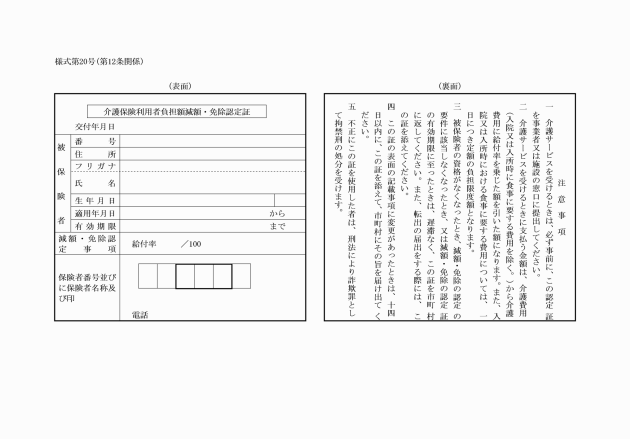 様式第20号(第12条関係)
(表面)
介護保険利用者負担額減額・免除認定証
交付年月日
被保険者
番号
住所
フリガナ
氏名
生年月日
適用年月日
から
有効期限
まで
減額・免除認
定事項
給付率 /100
保険者番号並び
に保険者名称及
び印
電話
(裏面)
注意事項
一 介護サービスを受けるときは、必ず事前に、この認定証
を事業者又は施設の窓口に提出してください。
二 介護サービスを受けるときに支払う金額は、介護費用
(入院又は入所時に食事に要する費用を除く。)から介護
費用に給付率を乗じた額を引いた額になります。また、入
院又は入所時における食事に要する費用については、一
日につき定額の負担限度額となります。
三 被保険者の資格がなくなったとき、減額・免除の認定の
要件に該当しなくなったとき、又は減額・免除の認定証
の有効期限に至ったときは、遅滞なく、この証を市町村
に返してください。また、転出の届出をする際には、こ
の証を添えてください。
四 この証の表面の記載事項に変更があったときは、十四
日以内に、この証を添えて、市町村にその旨を届け出てく
ださい。
五 不正にこの証を使用した者は、刑法により詐欺罪とし
て拘禁刑の処分を受けます。